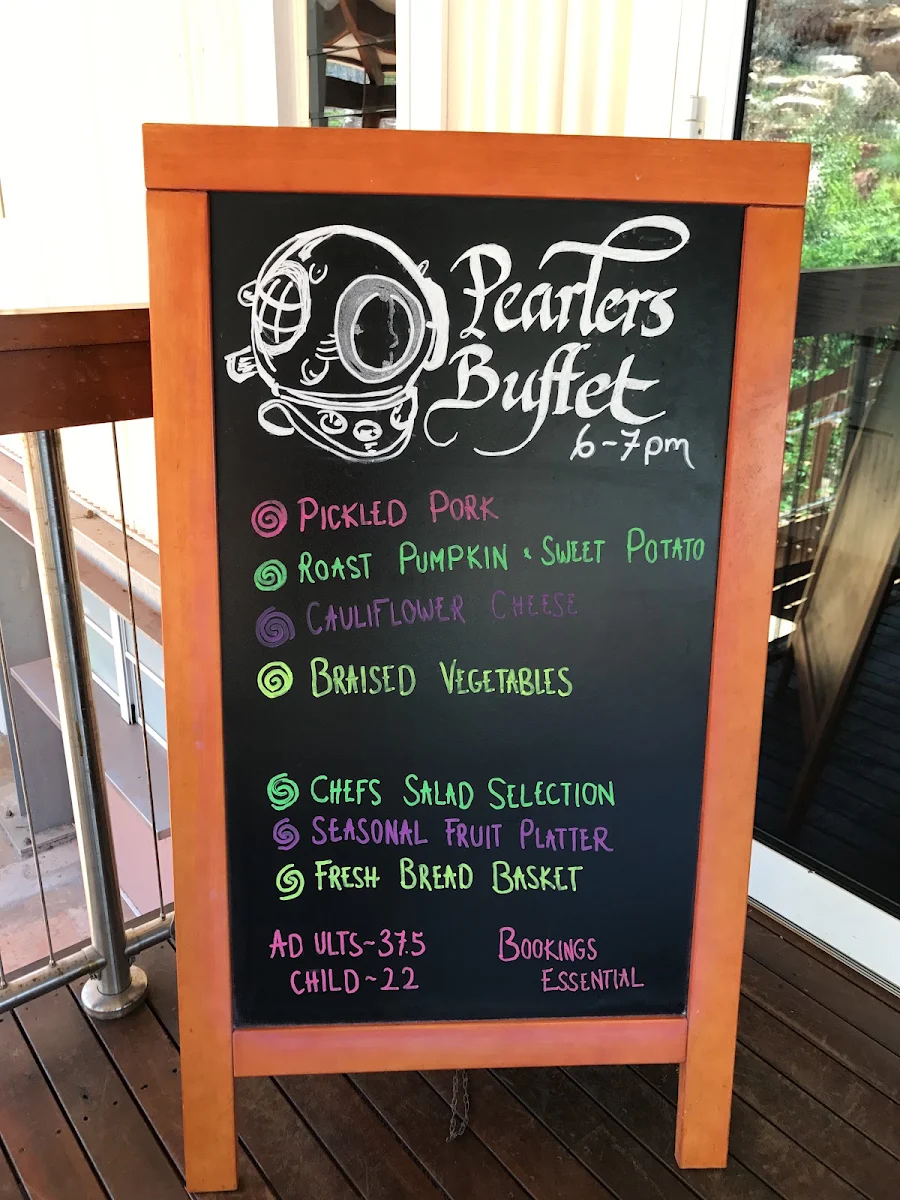 Pearlers
Buffet
6-7pm
PICKLED PORK
ROAST PUMPKIN & SWEET POTATO
CAULIFLOWER CHEESE
BRAISED VEGETABLES
CHEFS SALAD SELECTION
SEASONAL FRUIT PLATTER
FRESH BREAD BASKET
ADULTS~37.5
CHILD~22
BOOKINGS
ESSENTIAL